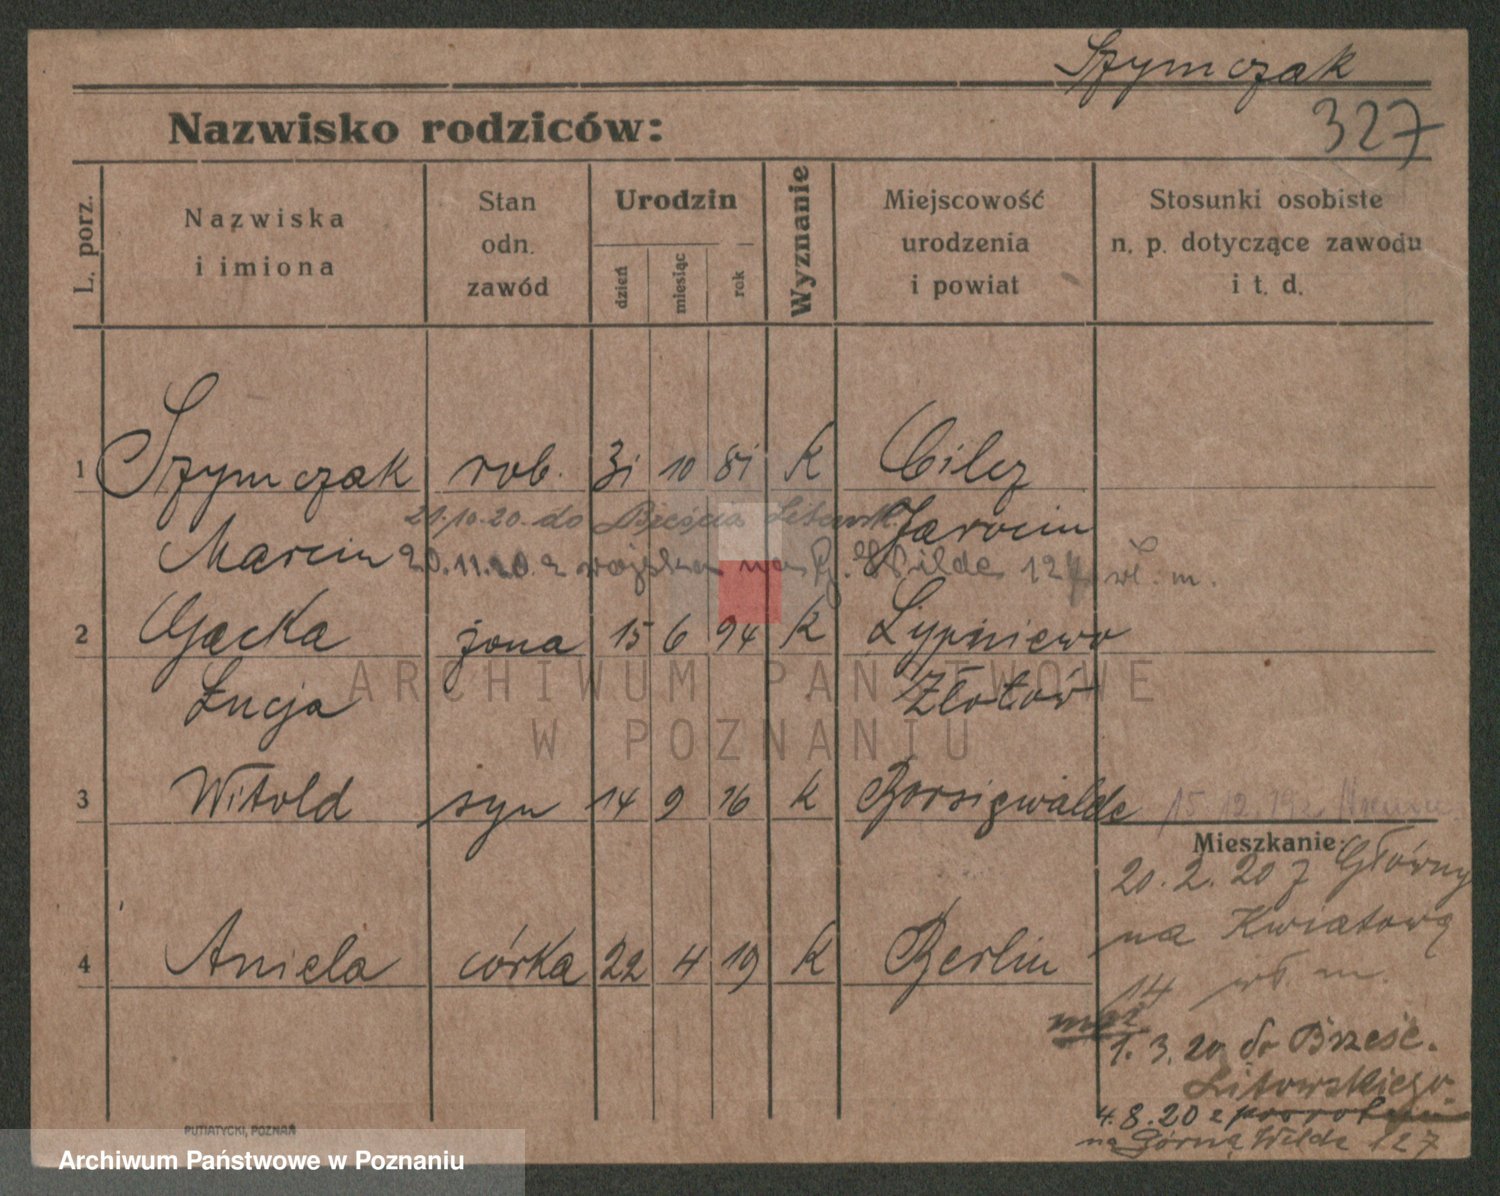 Szymczak
327
Nazwisko rodziców:
L. porz.
Nazwiska
i imiona
Stan
odn.
zawód
Urodzin
dzień
miesiąc
rok
Wyznanie
Miejscowość
urodzenia
i powiat
Stosunki osobiste
n. p. dotyczące zawodu
i t. d.
1 Szymczak rob. 31 10 81 K Cilcz
21.10.20. do Brześcia Litewsk. Jarocin
Marcin 20.11.20. z wojska na G. Wilde 127 wł. m.
2 Gacka żona 15 6 94 K Lypniewo
ARCHIWUM PAŃSTWOWE
Łucja Złotów
W POZNANIU
3 Witold syn 14 9 16 K Borsigwalde
15.12.19
Mieszkanie:
20.2.20 z Główny
na Kwiatową
4 Aniela córka 22 4 19 K Berlin
14 wł. m.
mąż
1.3.20 do Brześć.
Litowskiego
4.8.20 z powrotem
na Górną Wilde 127
PUTIATYCKI, POZNAŃ
Archiwum Państwowe w Poznaniu